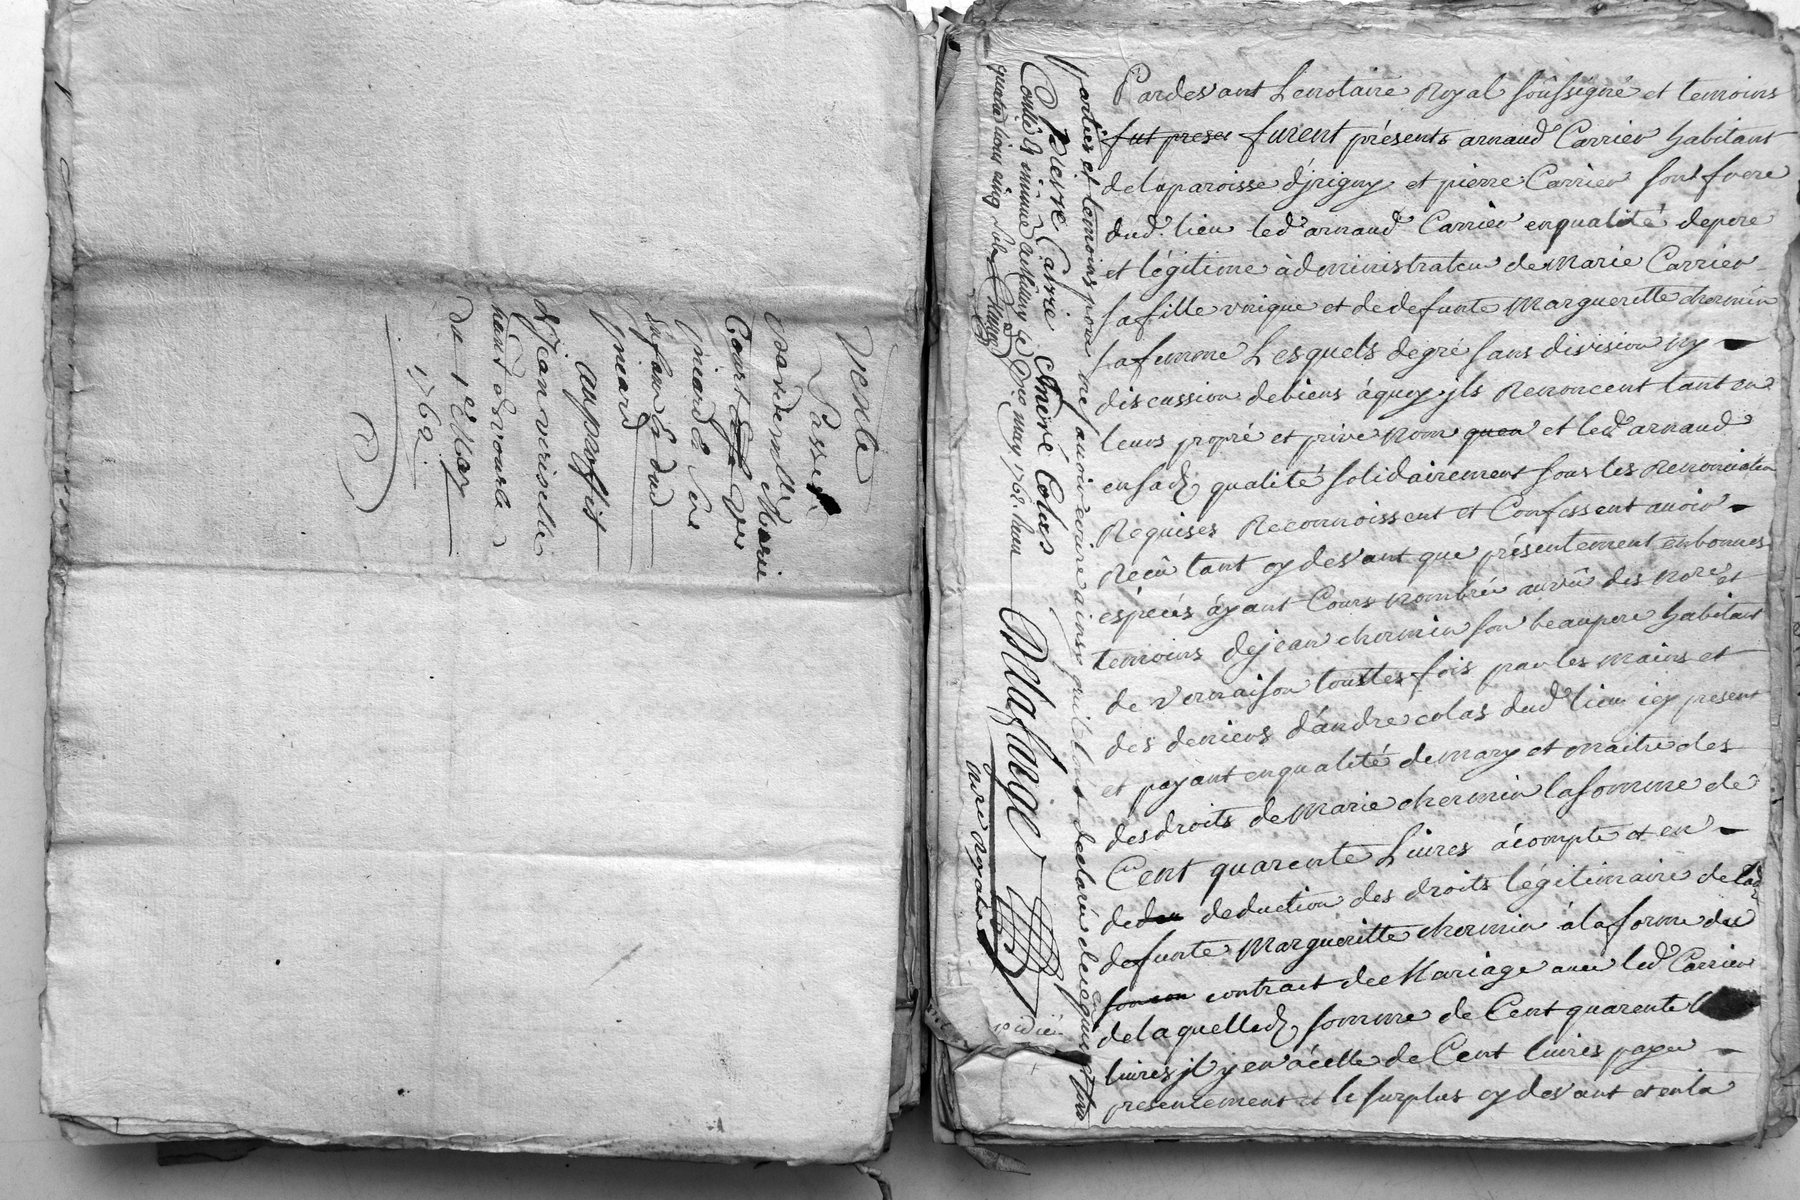 Vente
Passée
par demlle Marie
Court
pinard
pinard
au proffit
de jean
du 1er May
1762
Pardevant Le notaire Royal soussigné et temoins
fut preses furent présents arnaud Carrier habitant
de la paroisse d'jrigny et pierre Carrier son frere
dud. lieu led arnaud Carrier en qualité de pere
et légitime administrateur de Marie Carrier
sa fille vnique et de defunte Marguerette chermin
sa femme Lesquels de gré sans division ny
discussion de biens à quoy jls Renoncent tant en
leurs propre et privé nom quen et led arnaud
en sad qualité solidairement sous les Renonciation
Requises Reconnoissent et Confessent auoir
Recu tant cy devant que présentement en bonnes
espèces áyant Cours nombrée au vû des nore et
temoins de jean chermin son beaupere habitant
de vernaison touttes fois par les mains et
des deniers d'andre colas dud lieu icy present
et payant en qualité de mary et maitre des
des droits de Marie chermin la somme de
Cent quarente Liures àcompte et en
de deduction des droits légitimaire de lad
defunte Margueritte chermin à la forme du
contract de Mariage auec led Carrier
de la quelle d, somme de Cent quarente
liures jl y en a celle de Cent liures payer
presentement et le surplus cy devant et en la
parties et temoins pour ne sauoir écrire ainsy qu'ils ont declaré de ce enquis
Pierre Carrié Chéré Colas
Conllé à Millery le Dix may 1762. Reçu
quatre liures cinq sols
Delaforge
nore Royal